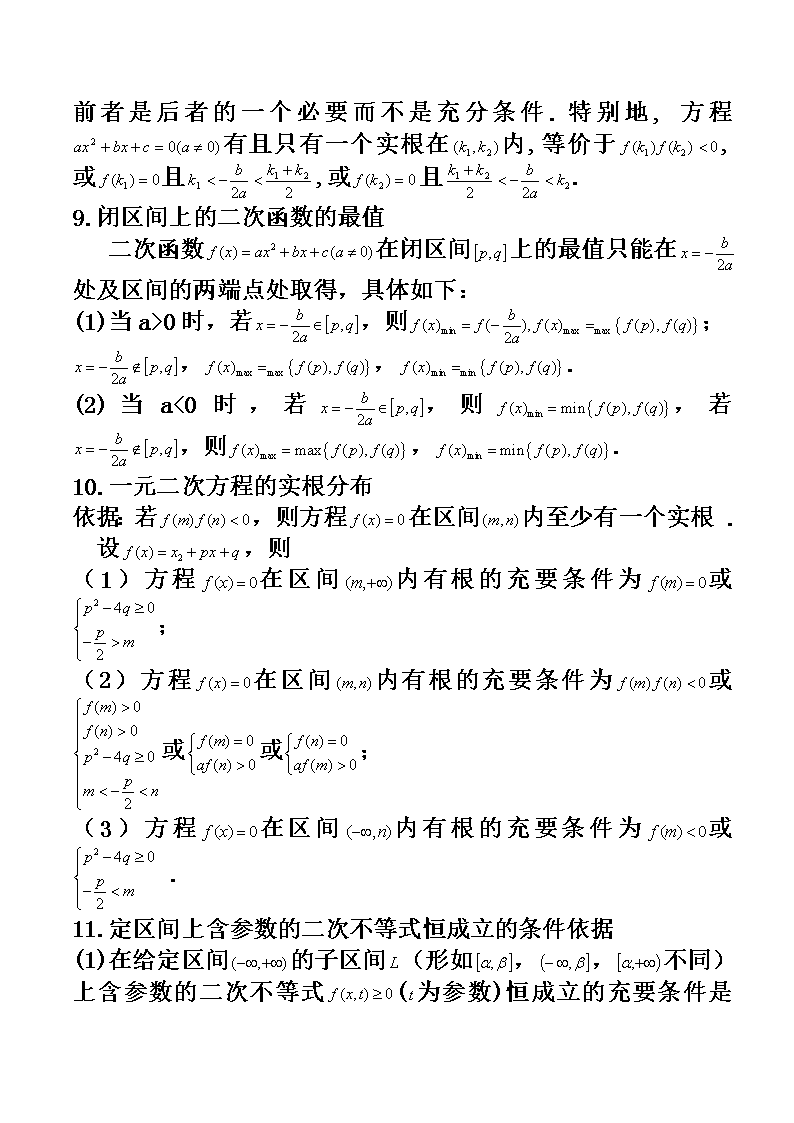 前者是后者的一个必要而不是充分条件. 特别地, 方程
ax² + bx + c = 0(a ≠ 0)有且只有一个实根在(k₁, k₂)内, 等价于f(k₁)f(k₂) < 0,
或f(k₁) = 0且k₁ < −b/2a < (k₁ + k₂)/2, 或f(k₂) = 0且(k₁ + k₂)/2 < −b/2a < k₂.
9.闭区间上的二次函数的最值
二次函数f(x) = ax² + bx + c(a ≠ 0)在闭区间[p,q]上的最值只能在x = −b/2a
处及区间的两端点处取得，具体如下：
(1)当a>0时，若x = −b/2a ∈ [p,q]，则f(x)min = f(−b/2a), f(x)max =max {f(p), f(q)}；
x = −b/2a ∉ [p,q]，f(x)max =max {f(p), f(q)}，f(x)min =min {f(p), f(q)}.
(2)当a<0时，若x = −b/2a ∈ [p,q]，则f(x)min = min{f(p), f(q)}，若
x = −b/2a ∉ [p,q]，则f(x)max = max{f(p), f(q)}，f(x)min = min{f(p), f(q)}.
10.一元二次方程的实根分布
依据：若f(m)f(n) < 0，则方程f(x) = 0在区间(m,n)内至少有一个实根 .
设f(x) = x₂ + px + q，则
（1）方程f(x) = 0在区间(m,+∞)内有根的充要条件为f(m) = 0或
{p² − 4q ≥ 0
−p/2 > m；
（2）方程f(x) = 0在区间(m,n)内有根的充要条件为f(m)f(n) < 0或
{f(m) > 0
f(n) > 0
p² − 4q ≥ 0
m < −p/2 < n 或{f(m) = 0
af(n) > 0 或{f(n) = 0
af(m) > 0；
（3）方程f(x) = 0在区间(−∞,n)内有根的充要条件为f(m) < 0或
{p² − 4q ≥ 0
−p/2 < m .
11.定区间上含参数的二次不等式恒成立的条件依据
(1)在给定区间(−∞,+∞)的子区间L（形如[α,β]，(−∞,β]，[α,+∞)不同）
上含参数的二次不等式f(x,t) ≥ 0(t为参数)恒成立的充要条件是